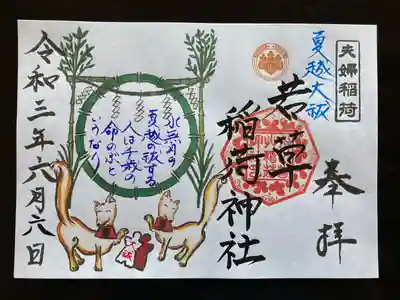 夫婦稲荷
奉拝
夏越大祓
若草
稲荷神社
水無月の
夏越の祓する
人は千歳の
命のぶと
いうなり
令和二年六月六日